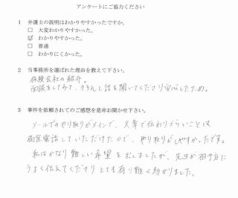 アンケートにご協力ください
1 弁護士の説明はわかりやすかったですか。
□ 大変わかりやすかった。
☑ わかりやすかった。
□ 普通
□ わかりにくかった。
2 当事務所を選ばれた理由を教えて下さい。
保険会社の紹介。
面談をしてみて、きちんと話を聞いてくださり安心したため。
3 事件を依頼されてのご感想を是非お聞かせ下さい。
メールでのやり取りがメインで、文章で伝わりづらいことは
電話していただけたので、やり取りがしやすかったです。
私はかなり難しい希望を出しましたが、先生が相手方に
うまく伝えてくださり とても有り難く助かりました。